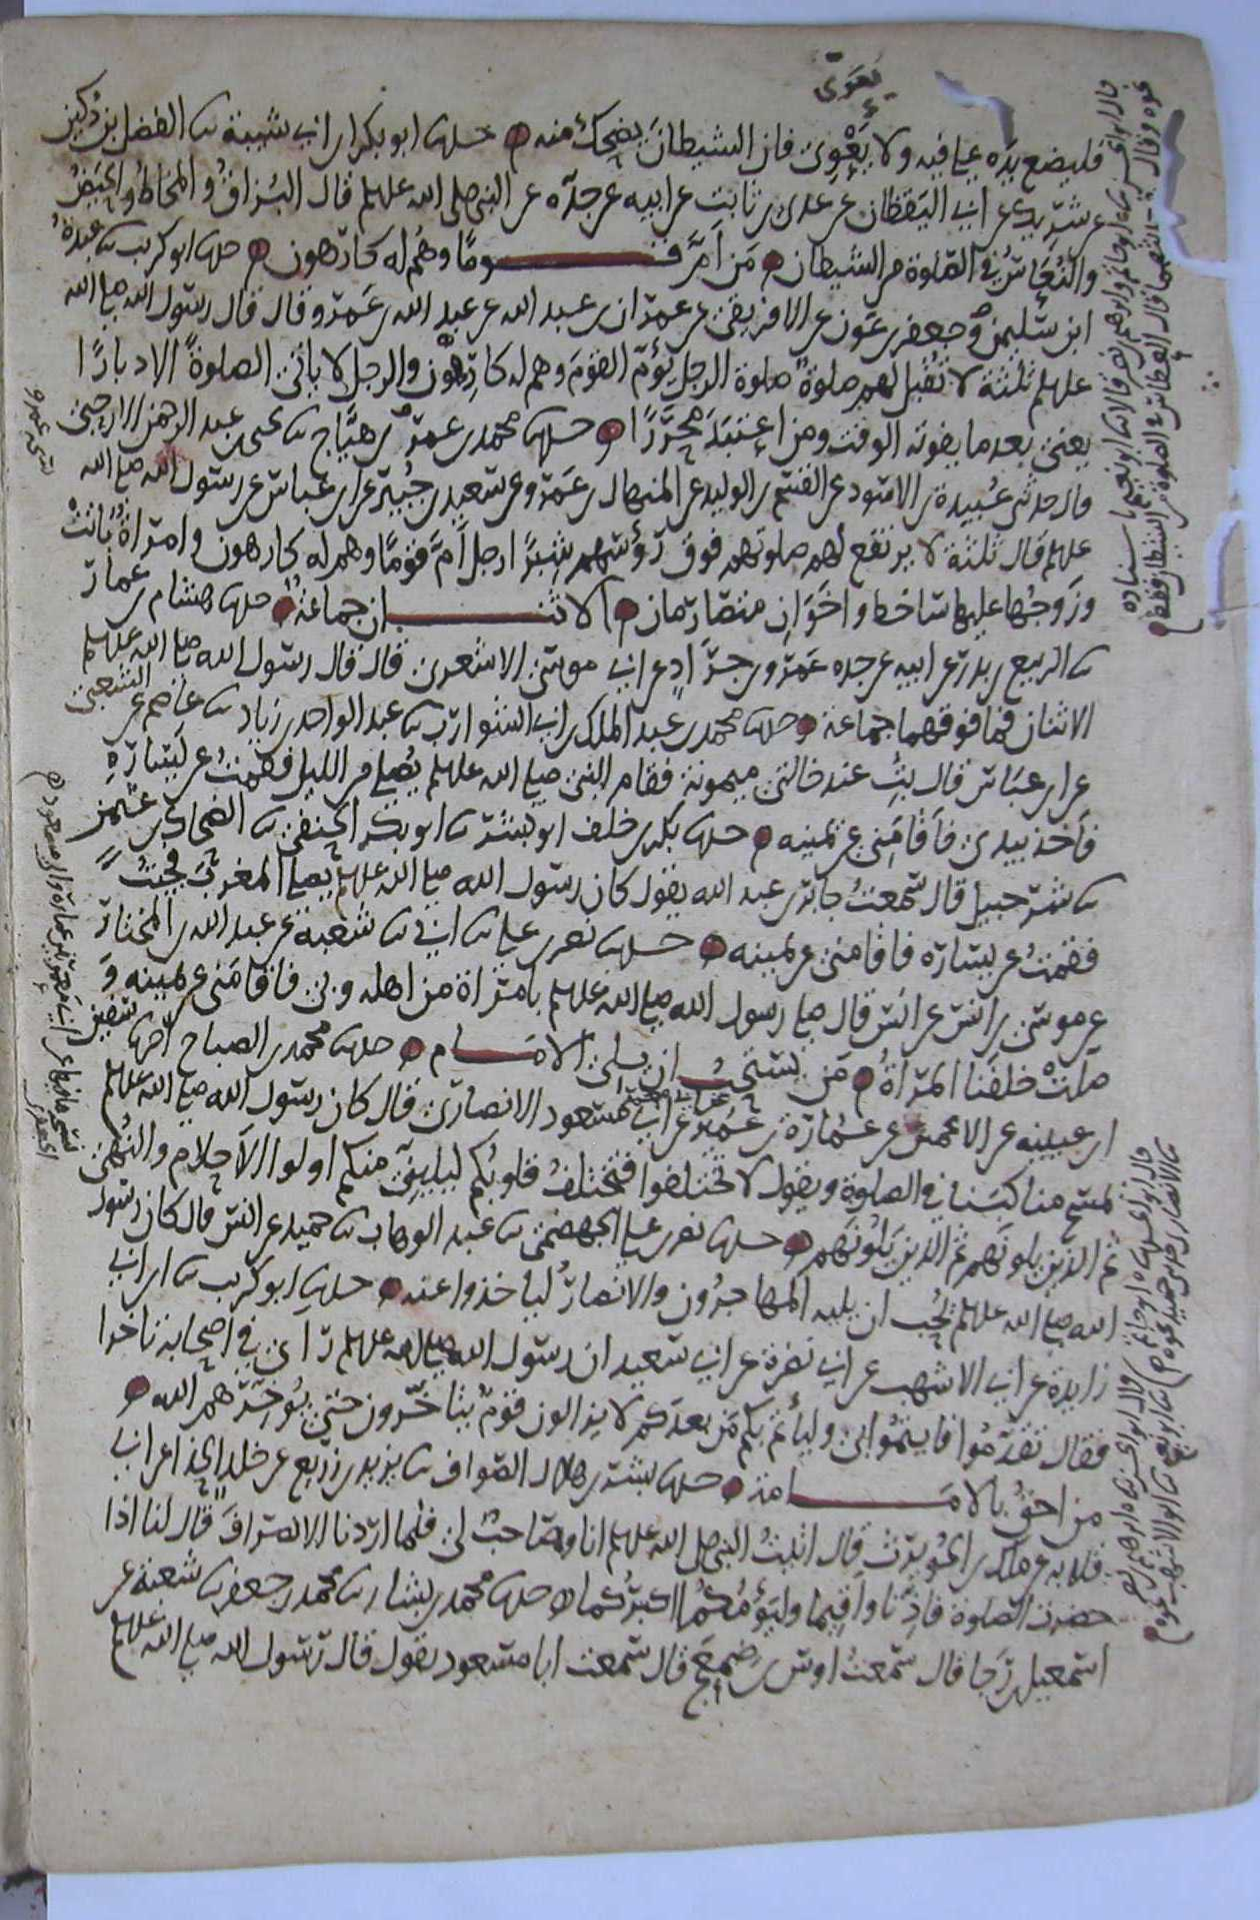 يعوى
فليضع يده على فيه ولا يَعْوِى فان الشيطان يضحك منه حدثنا ابو بكر بن ابى شيبة ثنا الفضل بن دُكين
عن شريك عن ابى اليقظان عن عدى بن ثابت عن ابيه عن جده عن النبى صلى الله عليه وسلم قال البُزاق والمخاط والحيض
والنُعاس فى الصلوة من الشيطان مَن اَمَّ قوما وهُم له كارهون حدثنا ابو كريب ثنا عبدة
ابن سليمن وجعفر بن عون عن الافريقى عن عمران بن عبد الله عن عبد الله بن عمرو قال قال رسول الله صلى الله
عليه وسلم ثلثة لا تُقبل لهم صلوة الرجل يؤم القوم وهم له كارهون والرجل لا ياتى الصلوة الا دبارًا
يعنى بعد ما يفوته الوقت ومن اعتبد محررًا حدثنا محمد بن عمر بن هيّاج ثنا يحيى بن عبد الرحمن الارحبى
قال حدثنى عُبيدة بن الاسود عن القسم بن الوليد عن المنهال بن عمرو عن سعيد بن جُبير عن ابن عباس عن رسول الله صلى الله
عليه وسلم قال ثلثة لا يرتفع لهم صلوتهم فوق رؤسهم شبرًا رجل اَمَّ قومًا وهم له كارهون وامراة باتت
وزوجها عليها ساخط واخوان متصارمان الاثنان جماعة حدثنا هشام بن عمار
ثنا الربيع بن بدر عن ابيه عن جده عمرو بن جراد عن ابى موسى الاشعرى قال قال رسول الله صلى الله عليه وسلم
الاثنان فما فوقهما جماعة حدثنا محمد بن عبد الملك بن ابى الشوارب ثنا عبد الواحد بن زياد ثنا عاصم عن الشعبى
عن ابن عباس قال بِتُّ عند خالتى ميمونة فقام النبى صلى الله عليه وسلم يُصلى من الليل فقمتُ عن يساره
فاخذ بيدى فاقامنى عن يمينه حدثنا بكر بن خلف ابو بشر ثنا ابو بكر الحنفى ثنا الضحاك بن عثمن
ثنا شرحبيل قال سمعتُ جابر بن عبد الله يقول كان رسول الله صلى الله عليه وسلم يصلى المغرب فجئتُ
فقمتُ عن يساره فاقامنى عن يمينه حدثنا نصر بن على ثنا ابى ثنا شعبة عن عبد الله بن المختار
عن موسى بن انس عن انس قال صلى رسول الله صلى الله عليه وسلم بامراة من اهله وبى فاقامنى عن يمينه و
صلتْ خلفنا المراةُ مَن يستحب ان يلى الامام حدثنا محمد بن الصباح اخبرنا سفين
ابن عيينه عن الاعمش عن عُمارة بن عمير عن ابى معمر عن ابى مسعود الانصارى قال كان رسول الله صلى الله عليه وسلم
يمسح مناكبنا فى الصلوة ويقول لا تختلفوا فتختلفُ قلوبُكم ليلينى منكم اولوا الاحلام والنُهى
ثم الذين يلونهم ثم الذين يلونهم حدثنا نصر بن على الجهضمى ثنا عبد الوهاب ثنا حميد عن انس قال كان رسول
الله صلى الله عليه وسلم يُحب ان يليه المهاجرون والانصارُ لياخذوا عنه حدثنا ابو كريب ثنا ابن ابى
زايدة عن ابى الاشهب عن ابى نضرة عن ابى سعيد ان رسول الله صلى الله عليه وسلم راى فى اصحابه تاخرا
فقال تقدموا فايتموا بى وليأتم بكم مَن بعدكم لا يزالون قومٌ يتاخرون حتى يُوخرهم الله
من احقُ بالامامة حدثنا بشر بن هلال الصواف ثنا يزيد بن زريع عن خلد الحذا عن ابى
قلابه عن ملك بن الحُويرث قال اتيتُ النبى صلى الله عليه وسلم انا وصاحبٌ لى فلما اردنا الانصراف قال لنا اذا
حضرت الصلوة فاذّنا واقيما وليؤمكما اكبركما حدثنا محمد بن بشار ثنا محمد بن جعفر ثنا شعبة عن
اسمعيل بن رجا قال سمعتُ اوس بن ضمعج قال سمعت ابا مسعود يقول قال رسول الله صلى الله عليه وسلم